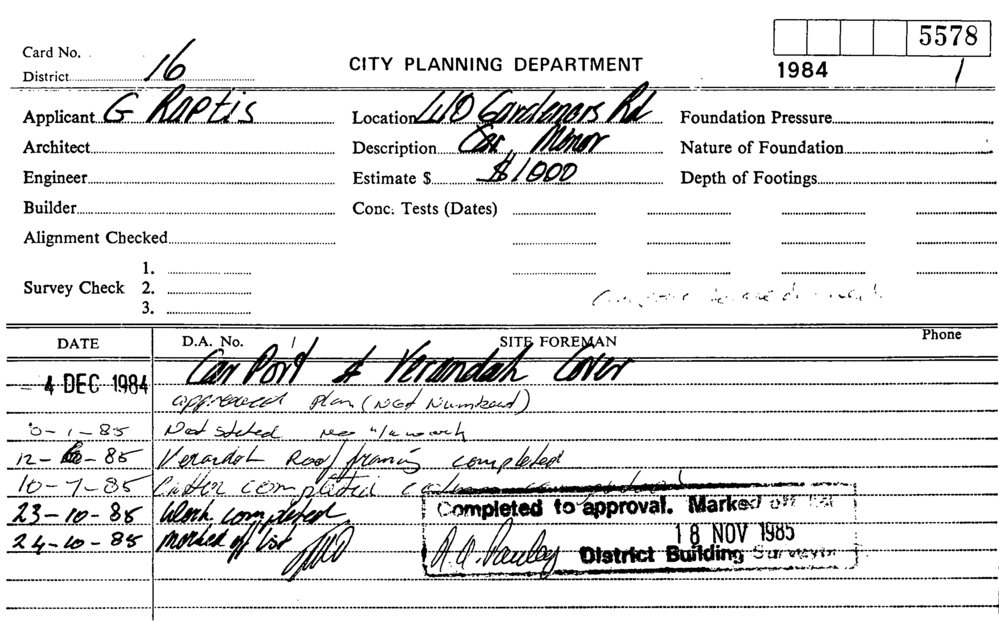 5578
1984 /
Card No.
District 16
CITY PLANNING DEPARTMENT
Applicant G Raptis
Location 410 Gardeners Rd
Foundation Pressure
Architect
Description Car Minor
Nature of Foundation
Engineer
Estimate $ $1000
Depth of Footings
Builder
Conc. Tests (Dates)
Alignment Checked
Survey Check
1.
2.
3.
DATE
D.A. No.
SITE FOREMAN
Phone
4 DEC 1984 Car Port & Verandah Cover
approved plan (Not Numbered)
-1-85 Not stated
12- -85 Verandah Roof framing completed
10-7-85 completed
23-10-85 Work completed
24-10-85 Marked off list
Completed to approval. Marked off list
18 NOV 1985
District Building Surveyor